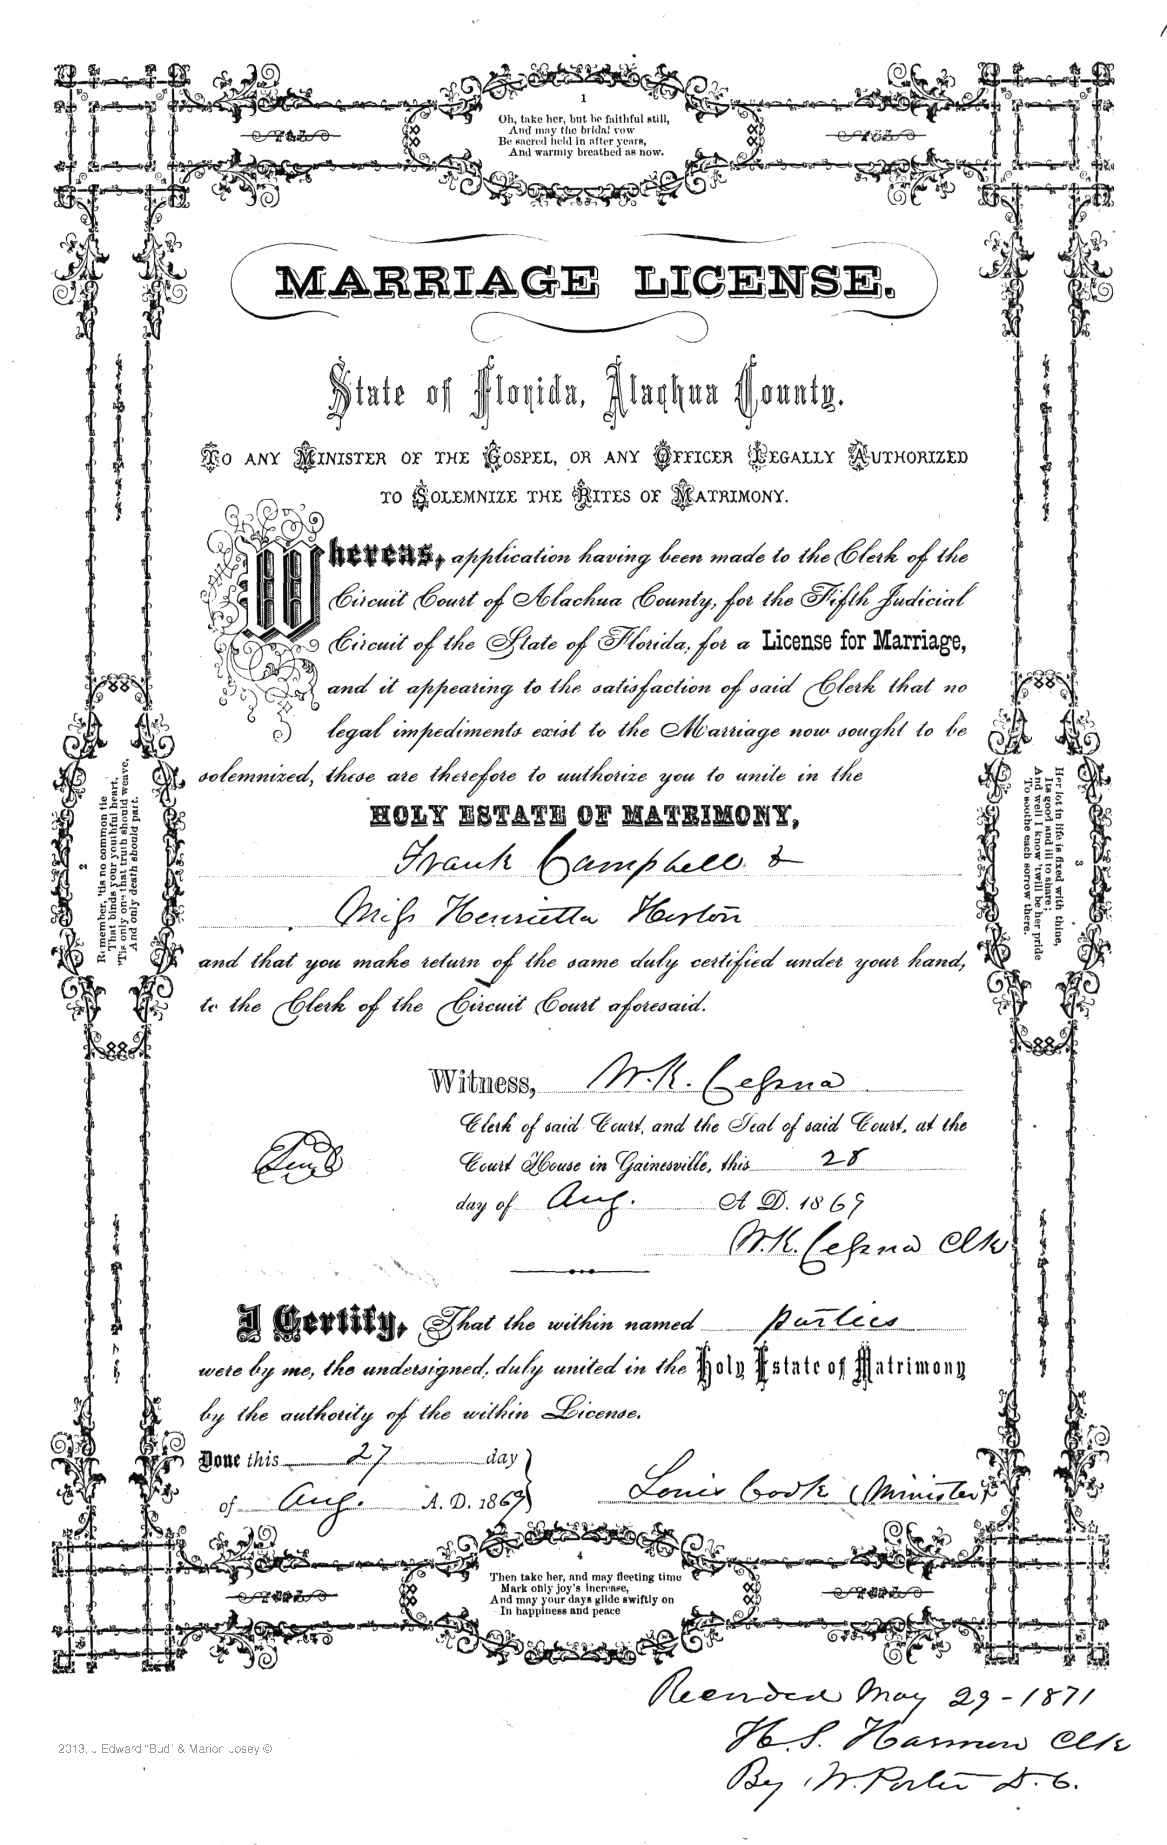 1
Oh, take her, but be faithful still,
And may the bridal vow
Be sacred held in after years,
And warmly breathed as now.
MARRIAGE LICENSE.
State of Florida, Alachua County.
TO ANY MINISTER OF THE GOSPEL, OR ANY OFFICER LEGALLY AUTHORIZED
TO SOLEMNIZE THE RITES OF MATRIMONY.
Whereas, application having been made to the Clerk of the
Circuit Court of Alachua County, for the Fifth Judicial
Circuit of the State of Florida, for a License for Marriage,
and it appearing to the satisfaction of said Clerk that no
legal impediments exist to the Marriage now sought to be
solemnized, these are therefore to authorize you to unite in the
HOLY ESTATE OF MATRIMONY,
Frank Campbell &
Miss Henrietta
and that you make return of the same duly certified under your hand,
to the Clerk of the Circuit Court aforesaid.
Witness, W.K. Cessna
Clerk of said Court, and the Seal of said Court, at the
Court House in Gainesville, this 28
day of Aug. A D. 1869
W.K. Cessna Clk
I Certify, That the within named parties
were by me, the undersigned, duly united in the Holy Estate of Matrimony
by the authority of the within License.
Done this 27 day
of Aug. A. D. 1869
Louis Cook (Minister)
2
Remember, 'tis no common tie
That binds your youthful heart,
'Tis only one that truth should weave,
And only death should part.
3
Her lot in life is fixed with thine,
Its good and ill to share;
And well I know 'twill be her pride
To soothe each sorrow there.
4
Then take her, and may fleeting time
Mark only joy's increase,
And may your days glide swiftly on
In happiness and peace
Recorded May 29-1871
H. S. Harmon Clk
By W. Porter D. C.
2013, J Edward "Bud" & Marion Josey ©